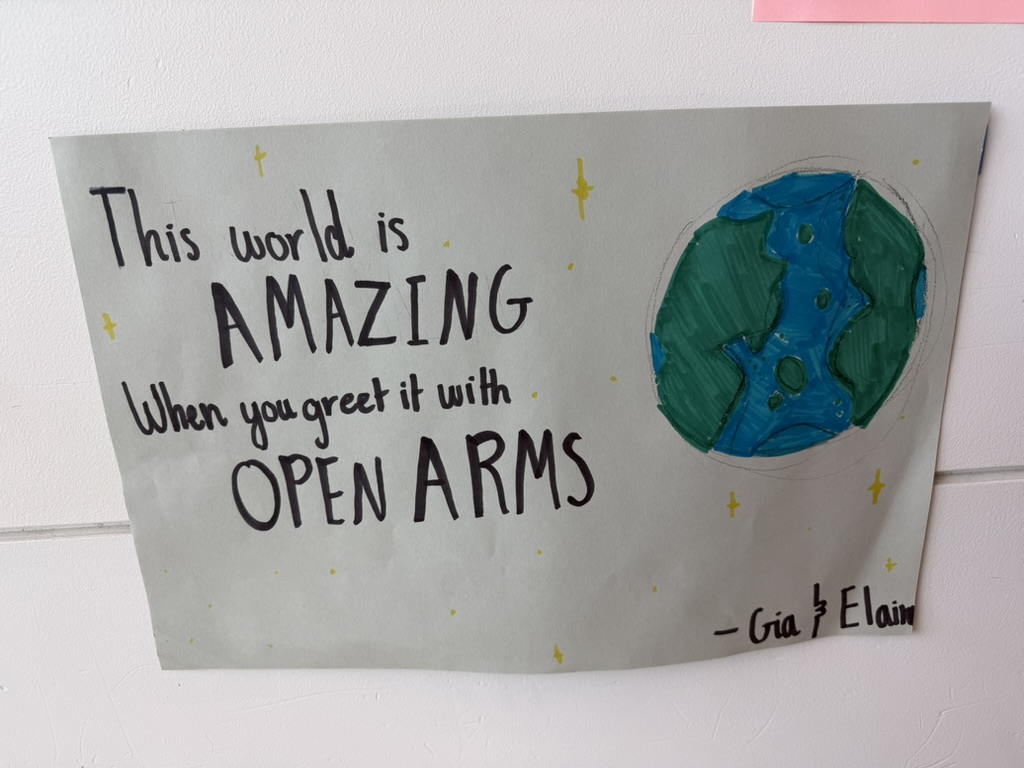 This world is
AMAZING
When you greet it with
OPEN ARMS
- Gia & Elain